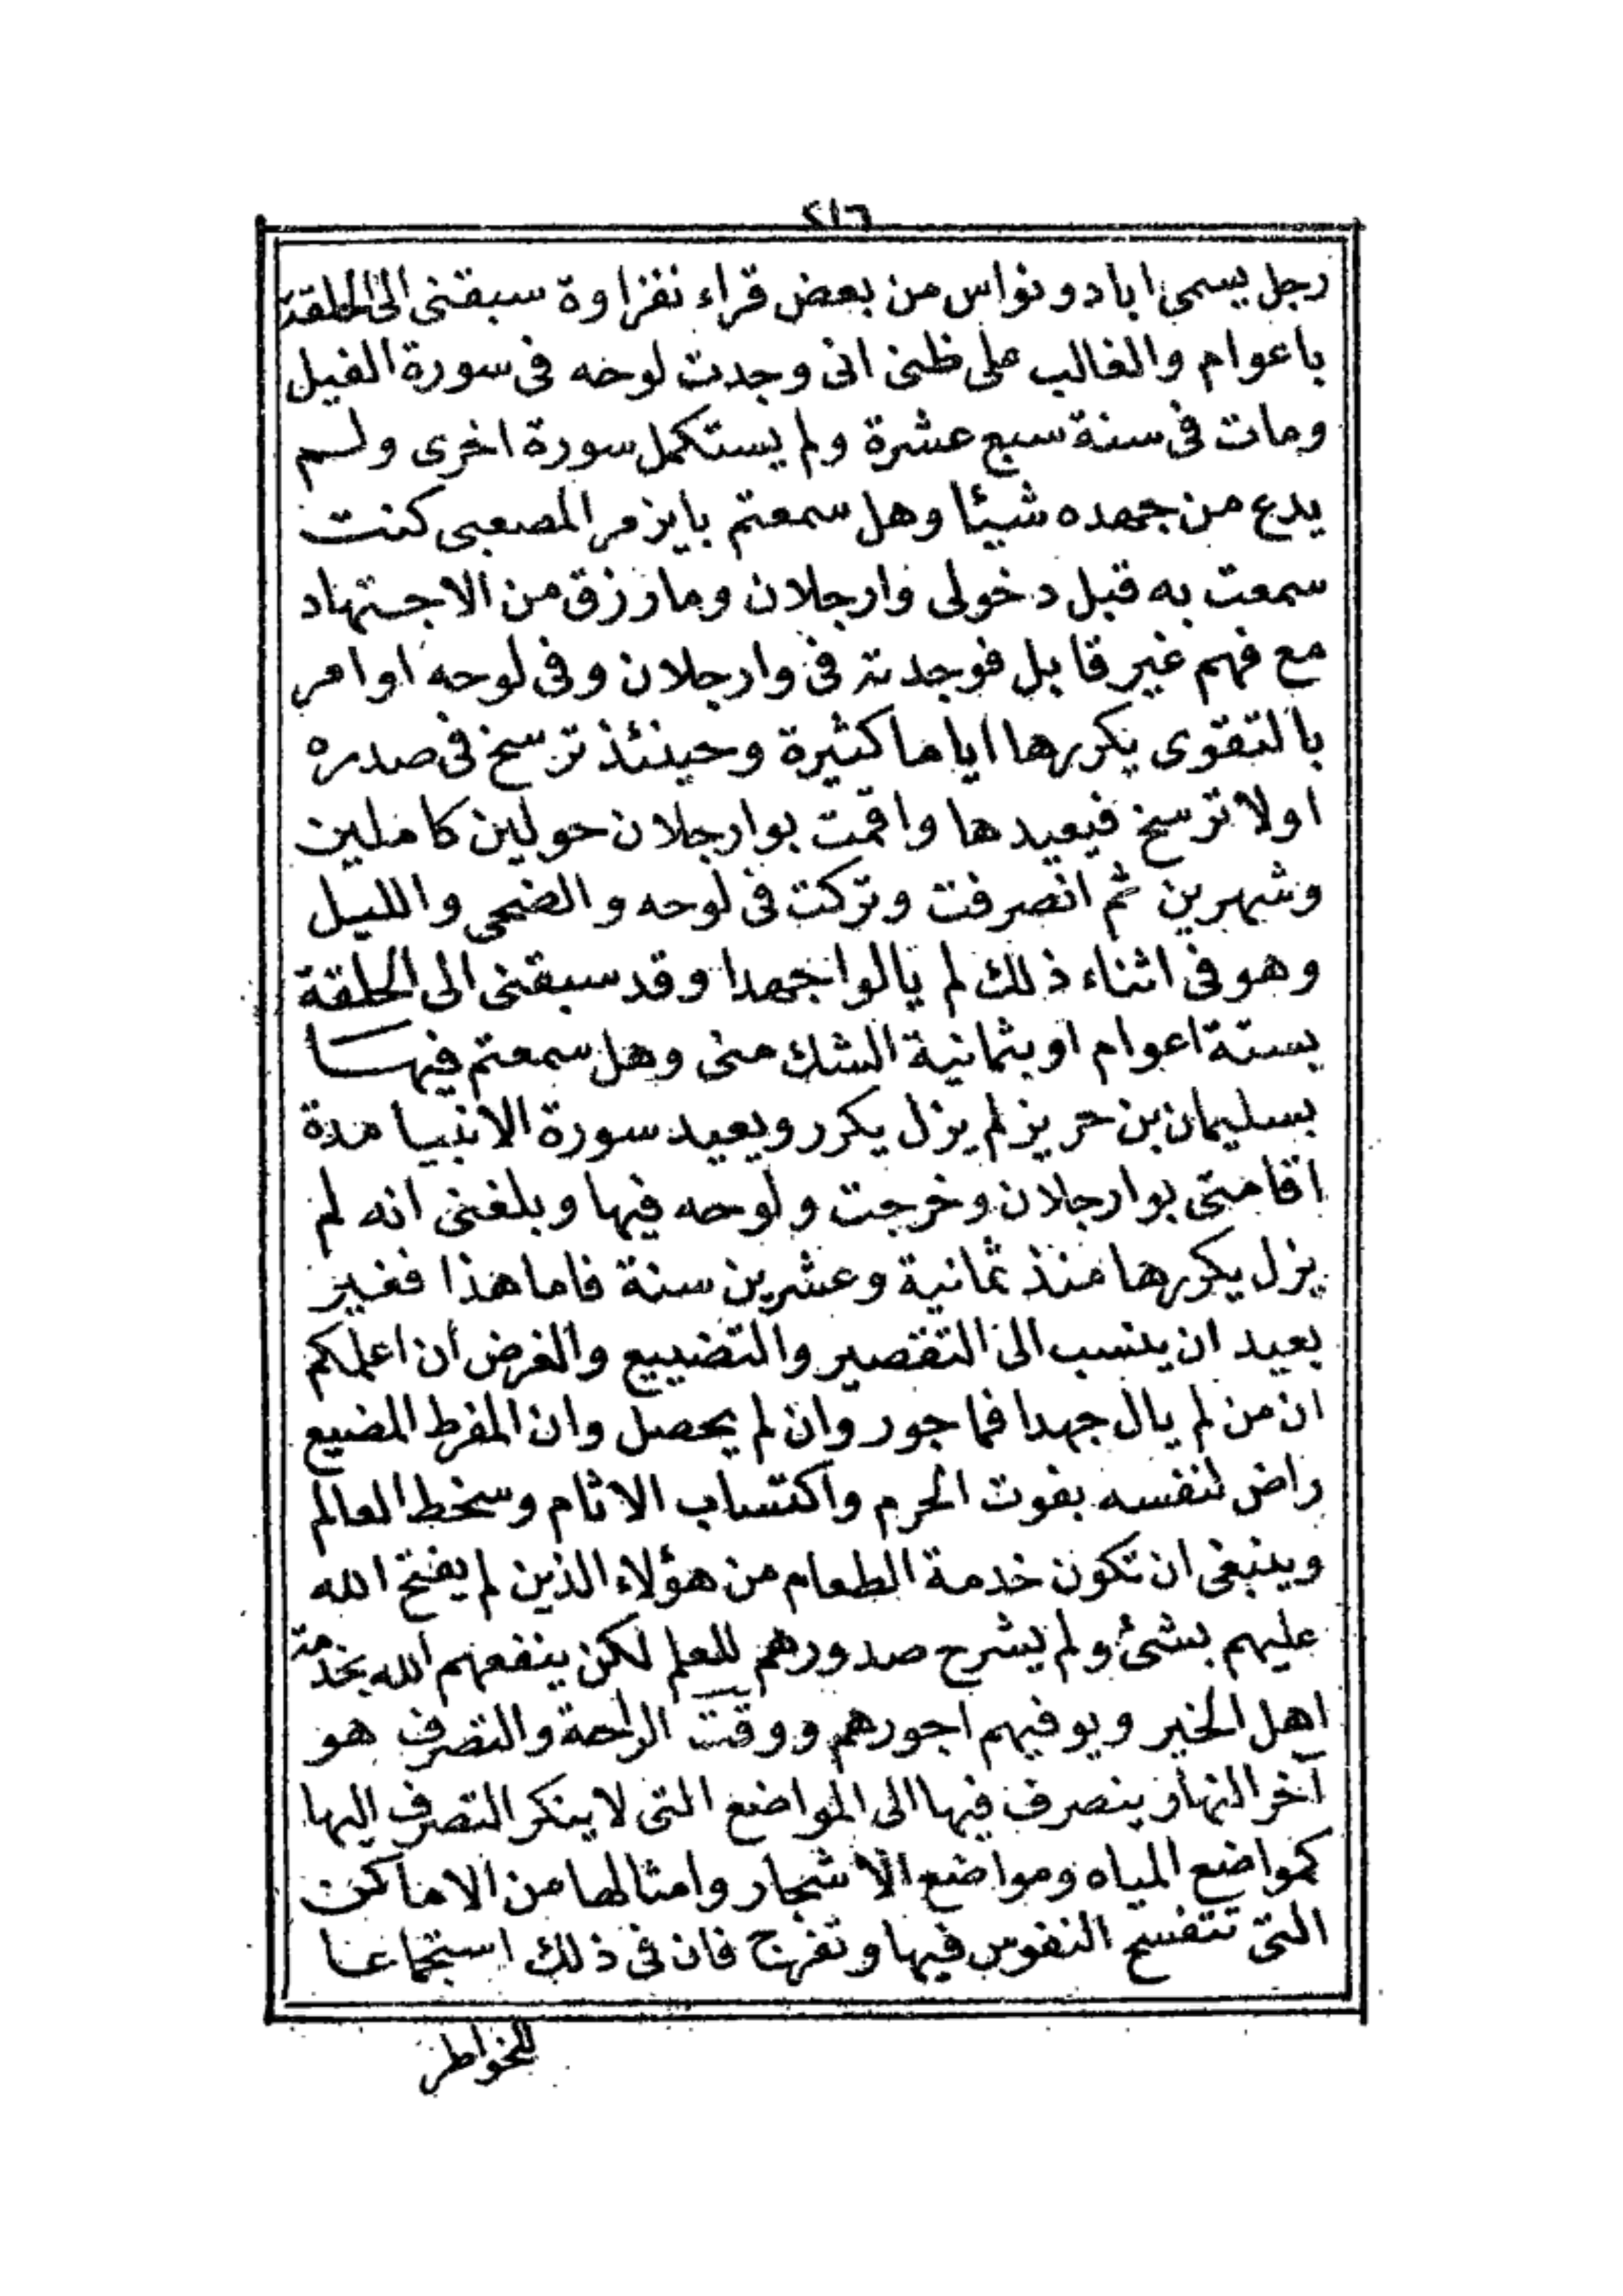 ٢١٦
رجل يسمى ابا دونواس من بعض قراء نفزاوة سبقنى الى الحلقة
باعوام والغالب على ظنى انى وجدت لوحه فى سورة الفيل
ومات فى سنة سبع عشرة ولم يستكمل سورة اخرى ولم
يدع من جهده شيئا وهل سمعتم بايزمر المصعبى كنت
سمعت به قبل دخولى وارجلان وما رزق من الاجتهاد
مع فهم غير قابل فوجدته فى وارجلان وفى لوحه اوامر
بالتقوى يكررها اياما كثيرة وحينئذ ترسخ فى صدره
اولا ترسخ فيعيدها واقمت بوارجلان حولين كاملين
وشهرين ثم انصرفت وتركت فى لوحه والضحى والليل
وهو فى اثناء ذلك لم يالوا جهدا وقد سبقنى الى الحلقة
بستة اعوام او بثمانية الشك منى وهل سمعتم فيها
بسليمان بن حريز لم يزل يكرر ويعيد سورة الانبيا مدة
اقامتى بوارجلان وخرجت ولوحه فيها وبلغنى انه لم
يزل يكررها منذ ثمانية وعشرين سنة فاما هذا فغير
بعيد ان ينسب الى التقصير والتضييع والغرض ان اعلمكم
ان من لم يال جهدا فماجور وان لم يحصل وان المفرط المضيع
راض لنفسه بفوت الحرم واكتساب الاثام وسخط العالم
وينبغى ان تكون خدمة الطعام من هؤلاء الذين لم يفتح الله
عليهم بشئ ولم يشرح صدورهم للعلم لكن ينفعهم الله بخدمة
اهل الخير ويوفيهم اجورهم ووقت الراحة والتصرف هو
آخر النهار ينصرف فيها الى المواضع التى لا ينكر التصرف اليها
كمواضع المياه ومواضع الاشجار وامثالها من الاماكن
التى تتفسح النفوس فيها وتفرج فان فى ذلك استجماعا
للخواطر